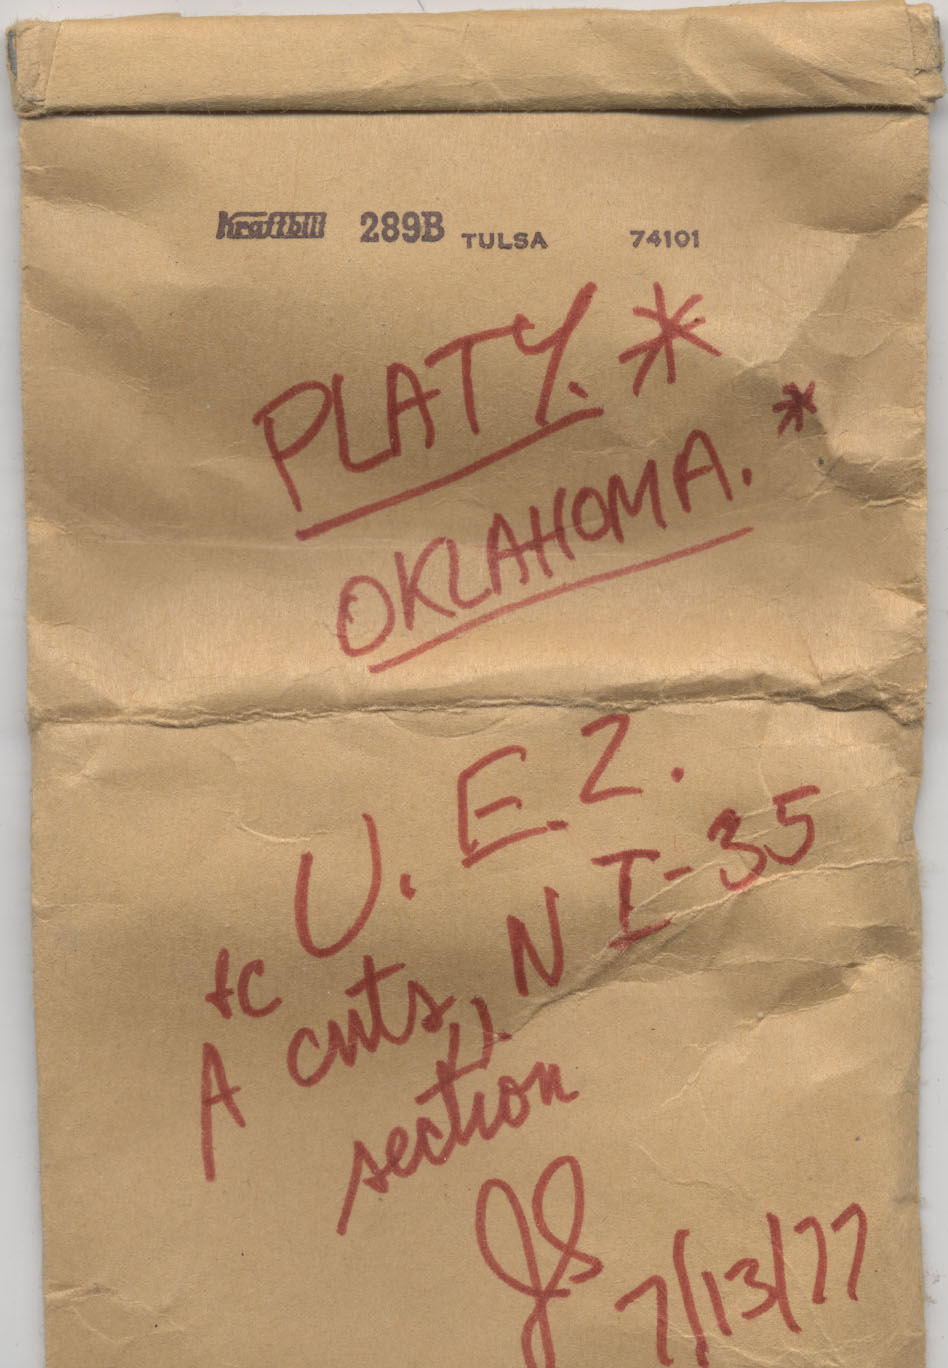 Kraftbilt 289B TULSA 74101
PLATY. *
OKLAHOMA. *
U. E. 2.
tc
A cuts, N I-35
section
JS 7/13/77